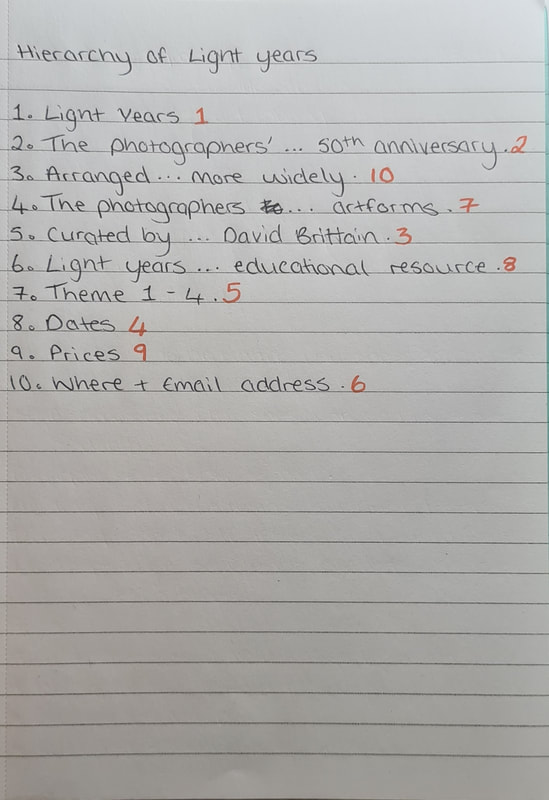 Hierarchy of Light years
1. Light Years 1
2. The photographers' ... 50th anniversary. 2
3. Arranged ... more widely. 10
4. The photographers ... artforms. 7
5. Curated by ... David Brittain. 3
6. Light years ... educational resource. 8
7. Theme 1 - 4. 5
8. Dates 4
9. Prices 9
10. Where + Email address. 6